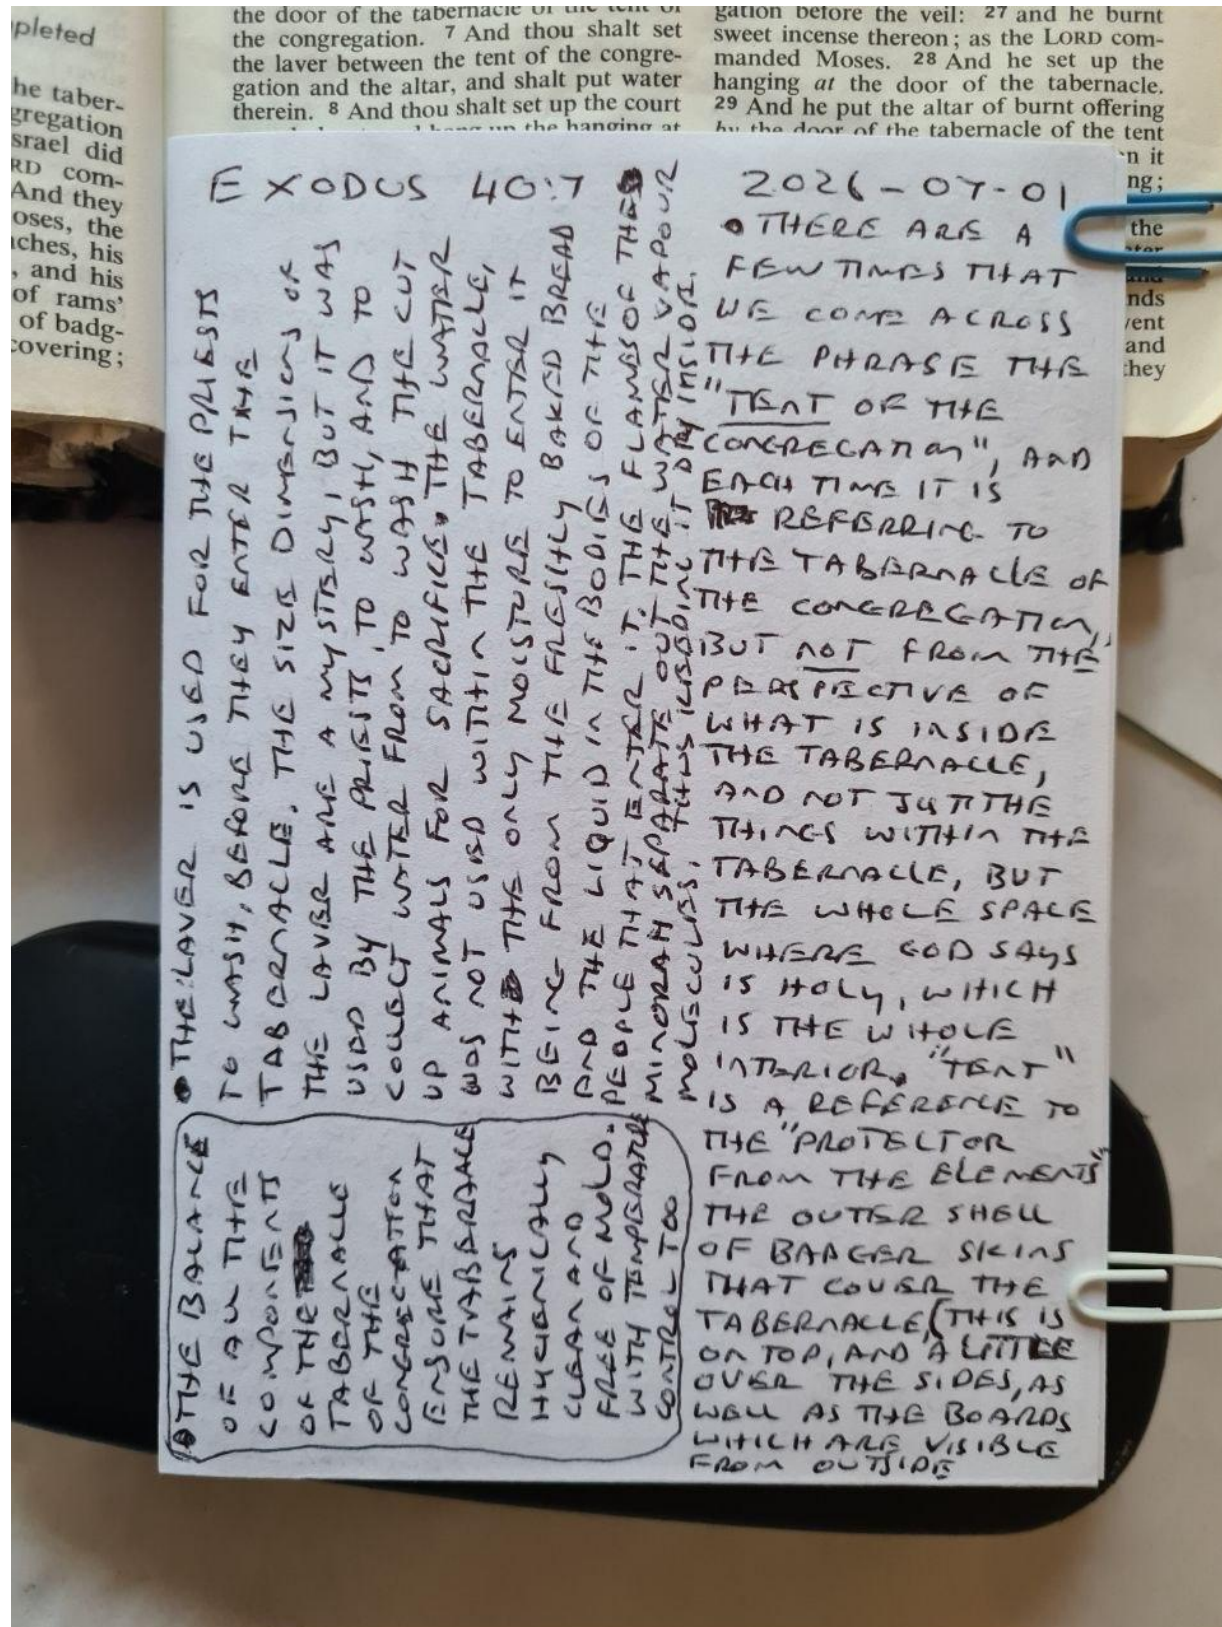 pleted
he taber-
gregation
srael did
RD com-
And they
oses, the
ches, his
, and his
of rams'
of badg-
covering;
the door of the tabernacle of the tent of
the congregation. 7 And thou shalt set
the laver between the tent of the congre-
gation and the altar, and shalt put water
therein. 8 And thou shalt set up the court
up the hanging at
gation before the veil: 27 and he burnt
sweet incense thereon; as the LORD com-
manded Moses. 28 And he set up the
hanging at the door of the tabernacle.
29 And he put the altar of burnt offering
by the door of the tabernacle of the tent
n it
ng;
the
nds
vent
and
they
EXODUS 40:7
2026-07-01
• THE LAVER IS USED FOR THE PRIESTS
TO WASH, BEFORE THEY ENTER THE
TABERNACLE. THE SIZE DIMENSIONS OF
THE LAVER ARE A MYSTERY, BUT IT WAS
USED BY THE PRIESTS, TO WASH, AND TO
COLLECT WATER FROM TO WASH THE CUT
UP ANIMALS FOR SACRIFICE. THE WATER
WAS NOT USED WITHIN THE TABERNACLE,
WITH THE ONLY MOISTURE TO ENTER IT
BEING FROM THE FRESHLY BAKED BREAD
AND THE LIQUID IN THE BODIES OF THE
PEOPLE THAT ENTER IT. THE FLAMES OF THE
MINORAH SEPARATE OUT THE WATER VAPOUR
MOLECULES, THUS KEEPING IT DRY INSIDE.
• THE BALANCE
OF ALL THE
COMPONENTS
OF THE
TABERNACLE
OF THE
CONGREGATION
ENSURE THAT
THE TABERNACLE
REMAINS
HYGIENICALLY
CLEAN AND
FREE OF MOLD.
WITH TEMPERATURE
CONTROL TOO
• THERE ARE A
FEW TIMES THAT
WE COME ACROSS
THE PHRASE THE
"TENT OF THE
CONGREGATION", AND
EACH TIME IT IS
REFERRING TO
THE TABERNACLE OF
THE CONGREGATION,
BUT NOT FROM THE
PERSPECTIVE OF
WHAT IS INSIDE
THE TABERNACLE,
AND NOT JUST THE
THINGS WITHIN THE
TABERNACLE, BUT
THE WHOLE SPACE
WHERE GOD SAYS
IS HOLY, WHICH
IS THE WHOLE
INTERIOR. "TENT"
IS A REFERENCE TO
THE "PROTECTOR
FROM THE ELEMENTS",
THE OUTER SHELL
OF BADGER SKINS
THAT COVER THE
TABERNACLE, (THIS IS
ON TOP, AND A LITTLE
OVER THE SIDES, AS
WELL AS THE BOARDS
WHICH ARE VISIBLE
FROM OUTSIDE